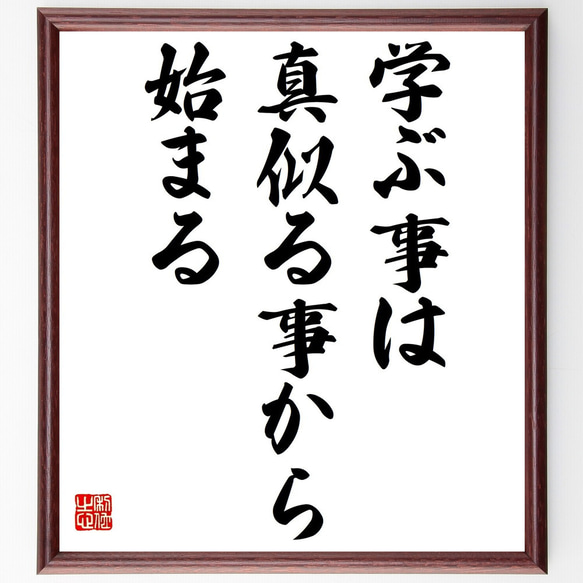 学ぶ事は
真似る事から
始まる